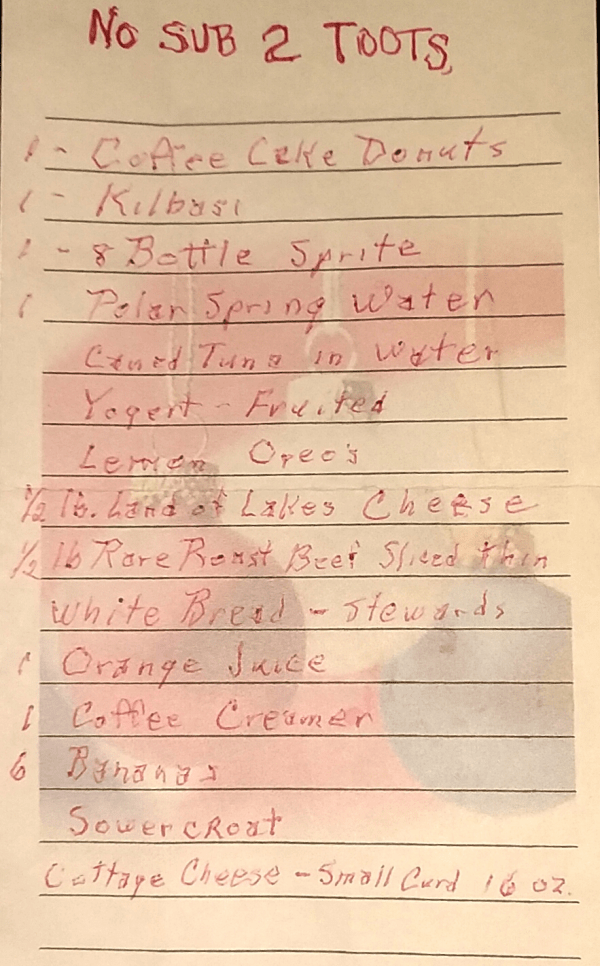 NO SUB 2 TOOTS
1 - Coffee Cake Donuts
1 - Kilbasi
1 - 8 Bottle Sprite
1 Polar Spring Water
Caned Tuna in Water
Yogert - Fruited
Lemon Oreo's
1/2 lb. Land of Lakes Cheese
1/2 lb Rare Roast Beef Sliced thin
White Bread - Stewards
1 Orange Juice
1 Coffee Creamer
6 Bananas
Sowercroat
Cottage Cheese - Small Curd 16 oz.